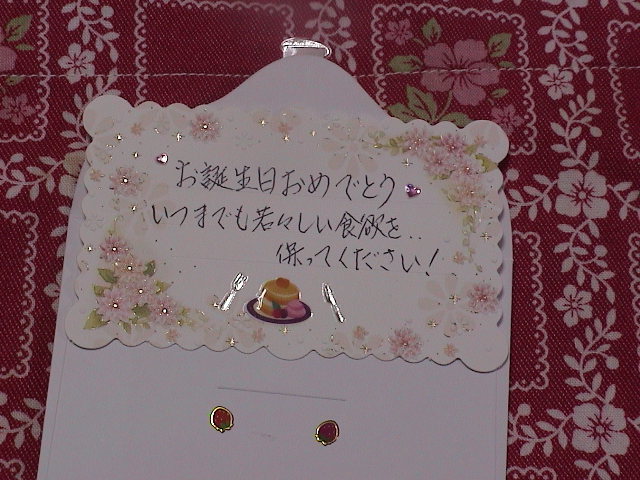 お誕生日おめでとう
いつまでも若々しい食欲を..
保ってください!